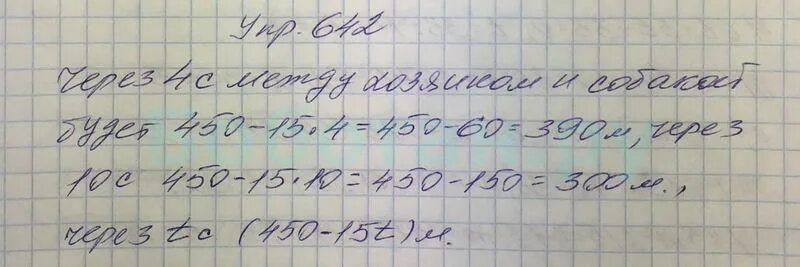 Упр. 642
Через 4с между хозяином и собакой
будет 450-15·4=450-60=390м, через
10с 450-15·10=450-150=300м.,
через tс (450-15t)м.